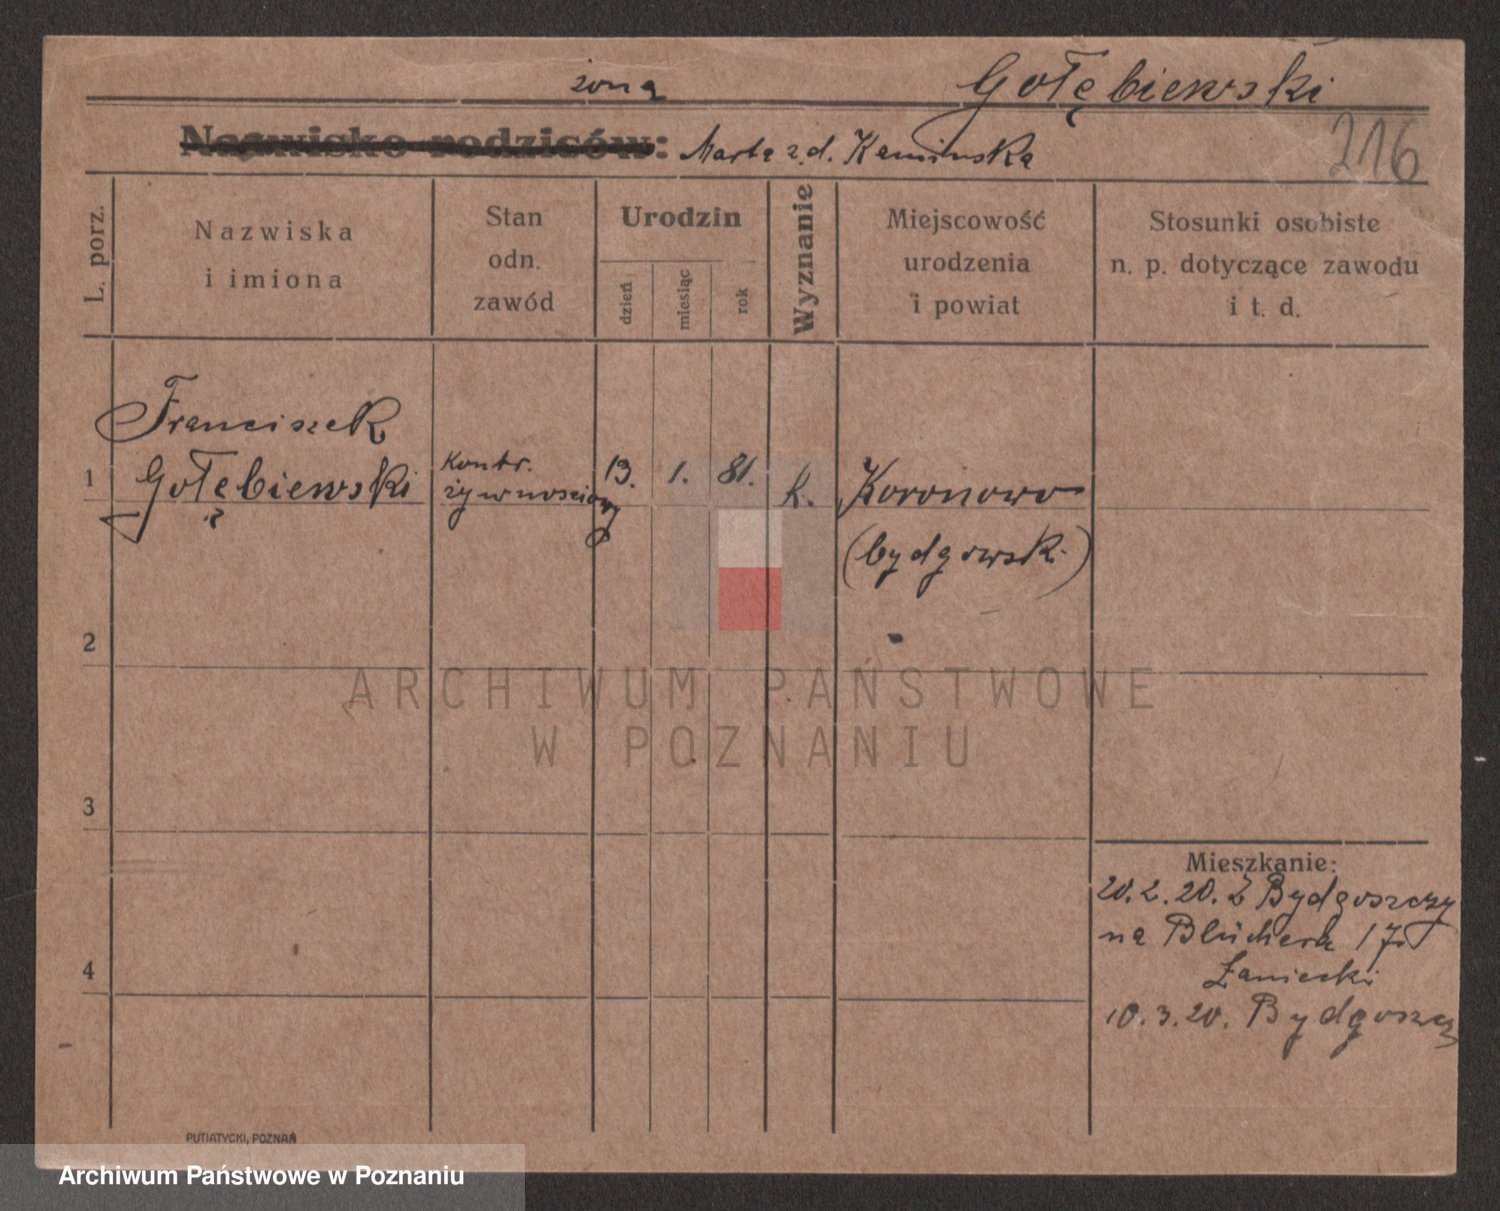 żona
Gołębiewski
216
Nazwisko rodziców: Marta z d. Kamińska
L. porz.
Nazwiska
i imiona
Stan
odn.
zawód
Urodzin
dzień
miesiąc
rok
Wyznanie
Miejscowość
urodzenia
i powiat
Stosunki osobiste
n. p. dotyczące zawodu
i t. d.
Franciszek
1 Gołębiewski
Kontr.
żywnościowy
13. 1. 81. k.
Koronowo
(bydgowski)
2
3
4
Mieszkanie:
20.2.20. Z Bydgoszczy
na Blüchera 17
Łaniecki
10.3.20. Bydgoszcz
PUTIATYCKI, POZNAŃ
ARCHIWUM PAŃSTWOWE
W POZNANIU
Archiwum Państwowe w Poznaniu